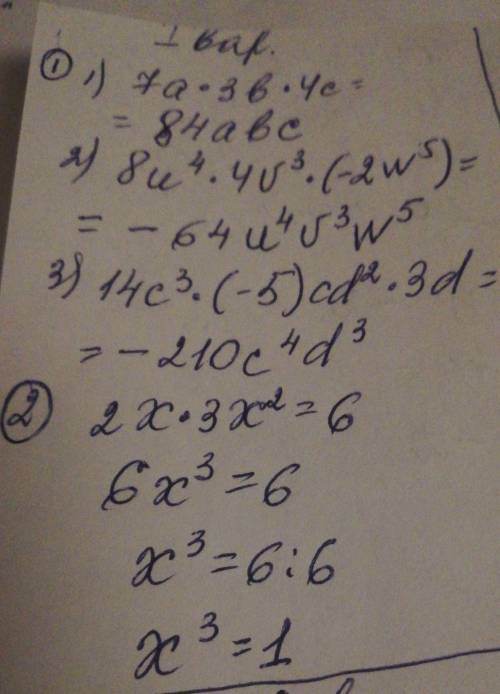 1 вар.
① 1) 7a·3b·4c=
= 84abc
2) 8u⁴·4v³·(-2w⁵)=
= -64u⁴v³w⁵
3) 14c³·(-5)cd²·3d=
= -210c⁴d³
② 2x·3x²=6
6x³=6
x³=6:6
x³=1